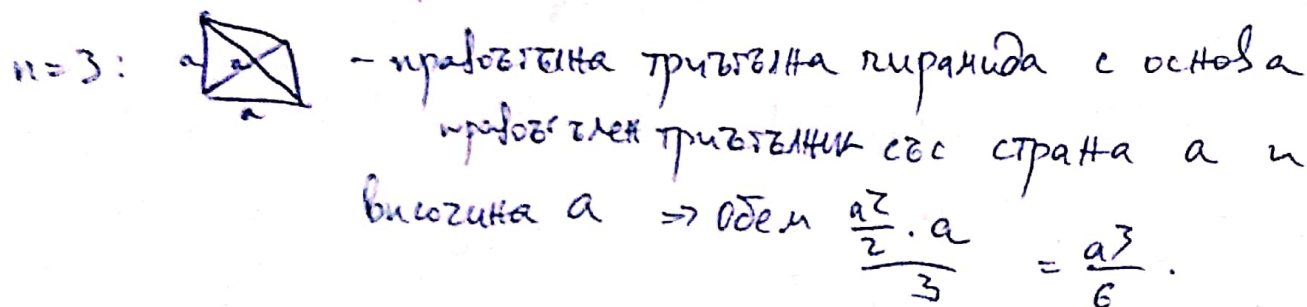 n=3: a a a - правоъгълна триъгълна пирамида с основа
правоъгълен триъгълник със страна a и
височина a ⇒ Обем \frac{\frac{a^2}{2} \cdot a}{3} = \frac{a^3}{6}.